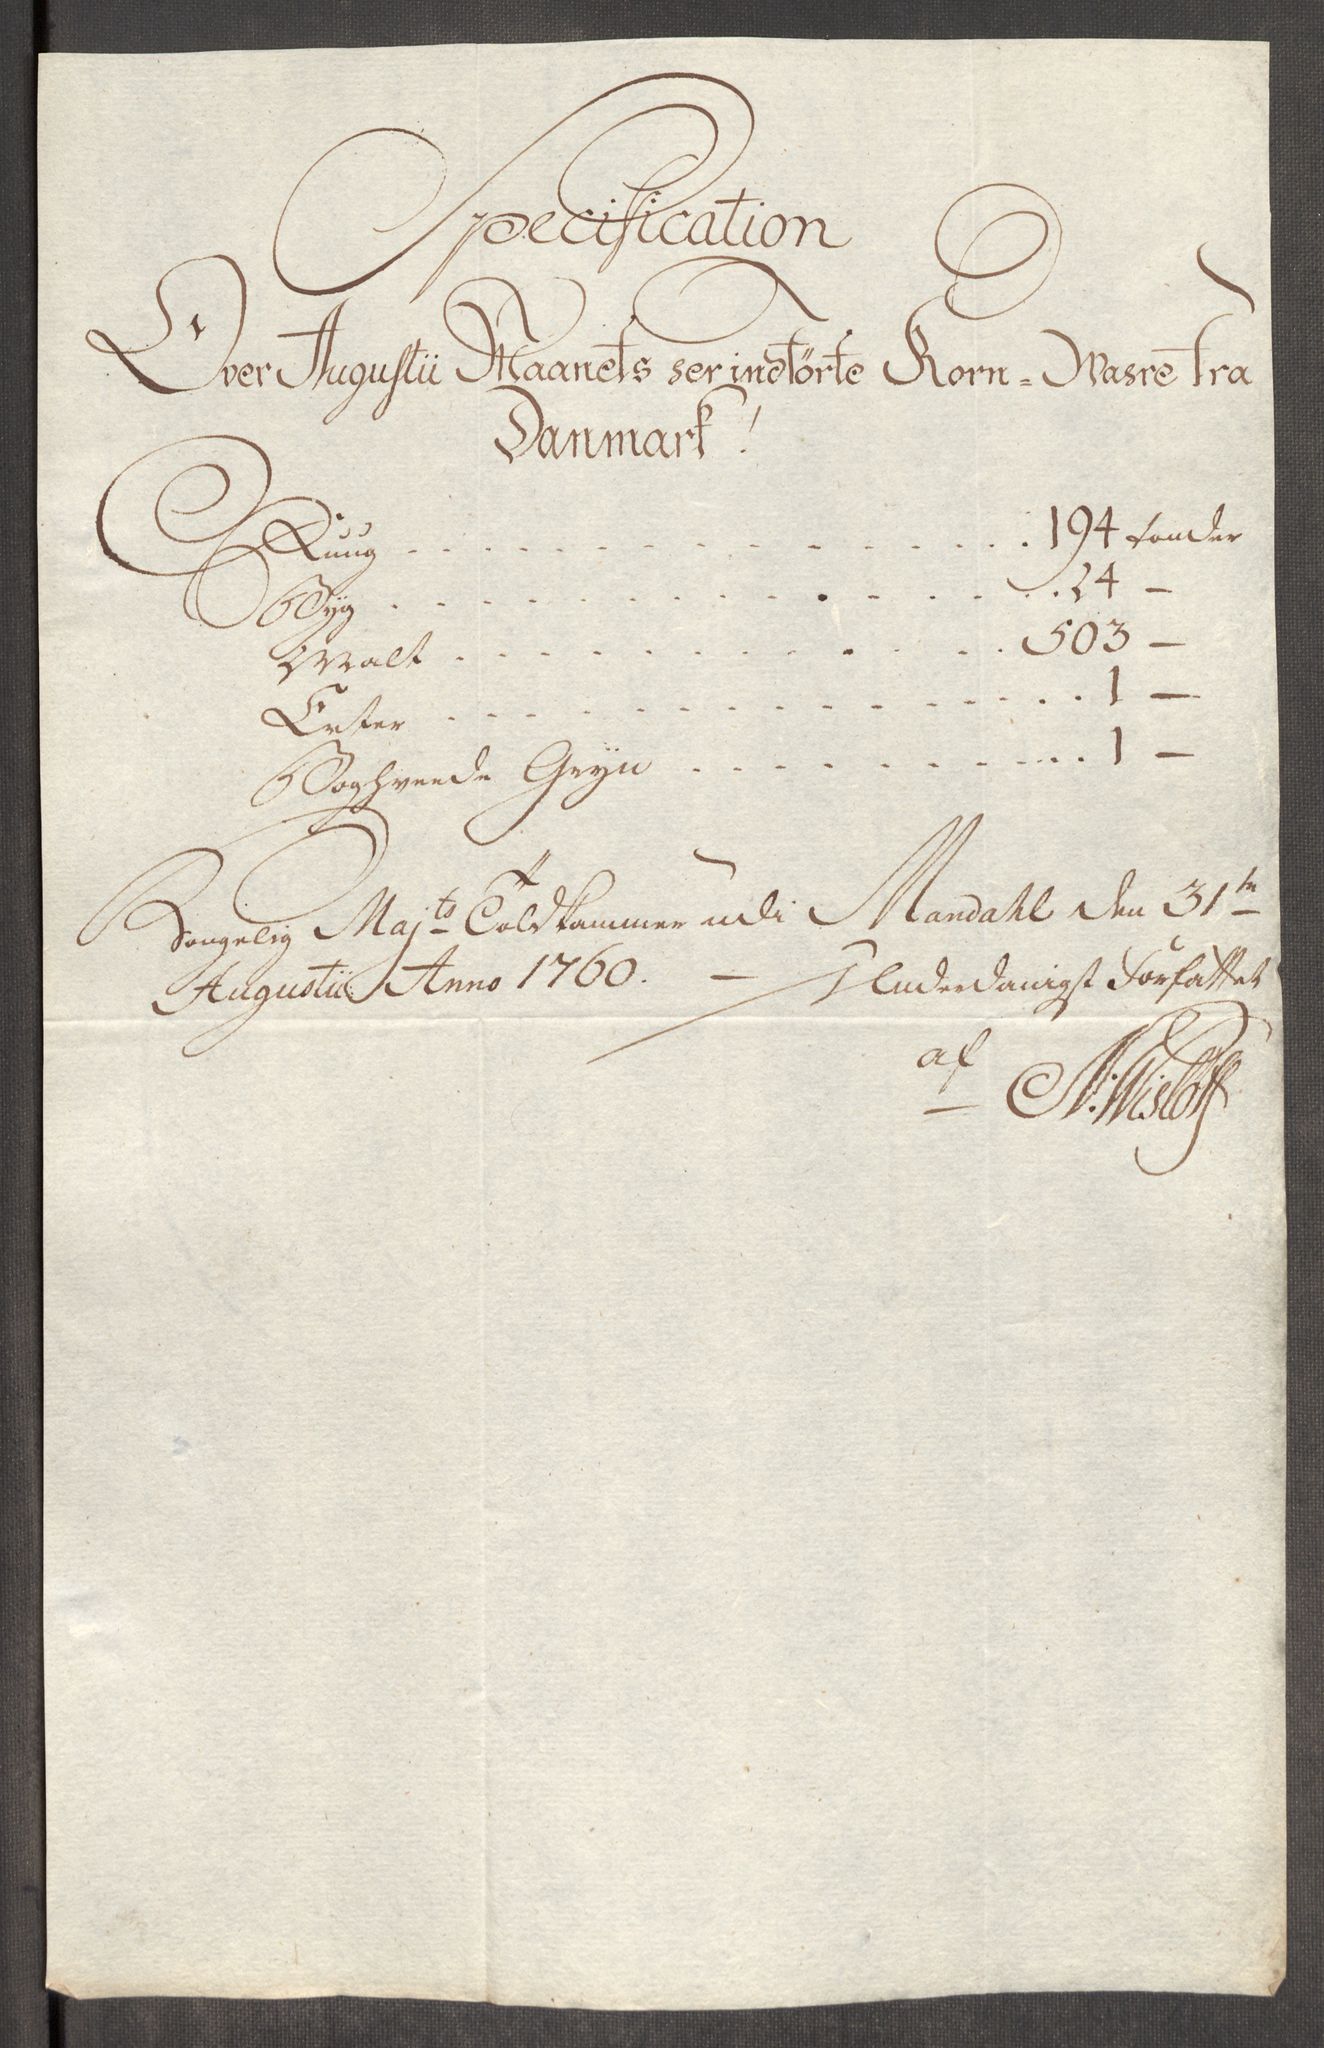 Specification
Over Augustii Maanets her indførte Korn=Wahre fra
Danmark!
Ruug . . . . . . . . . . . . . . . . . 194 tønder
Byg . . . . . . . . . . . . . . . . 24 —
Malt . . . . . . . . . . . . . . 503 —
Erter . . . . . . . . . . . . . . . . . 1 —
Boghveede Gryn . . . . . . . . . . . 1 —
Kongelig Majts Toldkammer udi Mandahl den 31te
Augustii Anno 1760. — Underdanigst Forfattet
af N: Wisløff